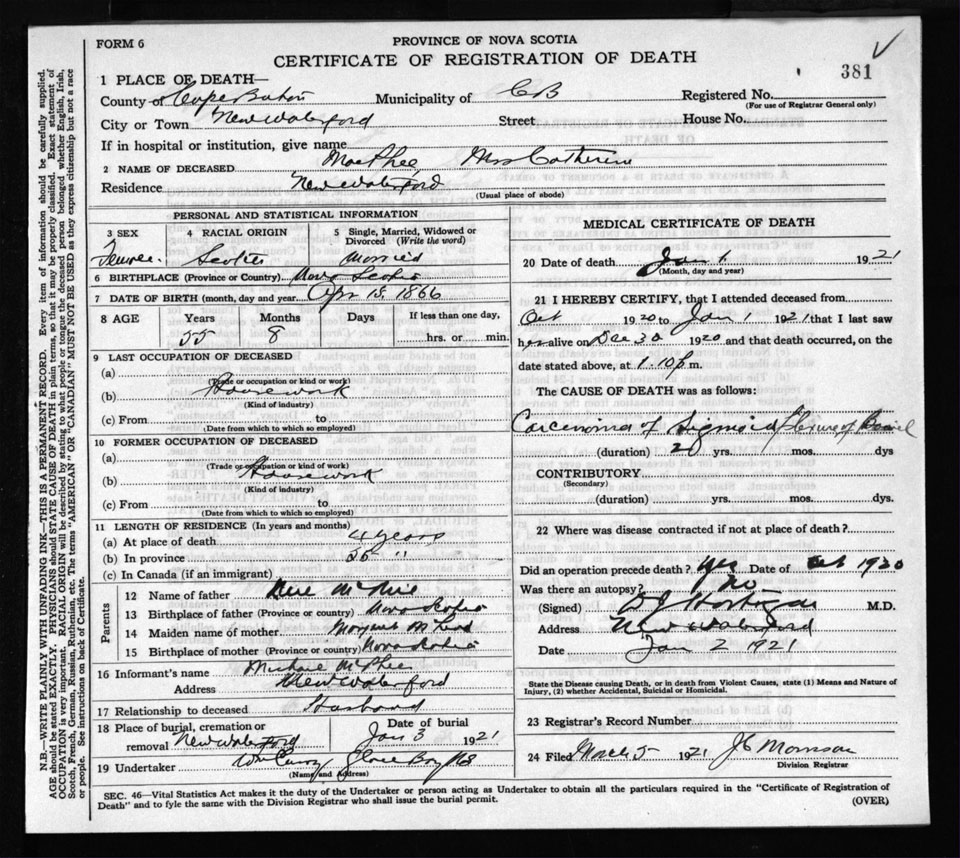 FORM 6
PROVINCE OF NOVA SCOTIA
CERTIFICATE OF REGISTRATION OF DEATH
381
1 PLACE OF DEATH—
County of Cape Breton Municipality of CB Registered No.
(For use of Registrar General only)
City or Town New Waterford Street House No.
If in hospital or institution, give name
2 NAME OF DECEASED MacPhee, Mrs Catherine
Residence New Waterford
(Usual place of abode)
PERSONAL AND STATISTICAL INFORMATION
3 SEX 4 RACIAL ORIGIN 5 Single, Married, Widowed or Divorced (Write the word)
Female Scotch Married
6 BIRTHPLACE (Province or Country) Nova Scotia
7 DATE OF BIRTH (month, day and year) Apr 15, 1866
8 AGE Years Months Days If less than one day,
55 8 hrs. or min.
9 LAST OCCUPATION OF DECEASED
(a)
(Trade or occupation or kind of work)
(b) Housework
(Kind of industry)
(c) From to
(Date from which to which so employed)
10 FORMER OCCUPATION OF DECEASED
(a)
(Trade or occupation or kind of work)
(b) Housework
(Kind of industry)
(c) From to
(Date from which to which so employed)
11 LENGTH OF RESIDENCE (In years and months)
(a) At place of death 4 years
(b) In province 55 "
(c) In Canada (if an immigrant)
Parents
12 Name of father
13 Birthplace of father (Province or country) Nova Scotia
14 Maiden name of mother Margaret
15 Birthplace of mother (Province or country) Nova Scotia
16 Informant's name Michael McPhee
Address New Waterford
17 Relationship to deceased Husband
18 Place of burial, cremation or removal New Waterford Date of burial Jan 3 1921
19 Undertaker Wm Curry Glace Bay NS
(Name and Address)
MEDICAL CERTIFICATE OF DEATH
20 Date of death Jan 1. 1921
(Month, day and year)
21 I HEREBY CERTIFY, that I attended deceased from
Oct 1920 to Jan 1 1921 that I last saw
her alive on Dec 30 1920 and that death occurred, on
date stated above, at 1.10 p m.
The CAUSE OF DEATH was as follows:
Carcenoma of Sigmoid flexure of Bowel
(duration) 2 yrs. mos. dys
CONTRIBUTORY
(Secondary)
(duration) yrs. mos. dys.
22 Where was disease contracted if not at place of death?
Did an operation precede death? Yes Date of Oct 1920
Was there an autopsy? No
(Signed) M.D.
Address New Waterford
Date Jan 2 1921
State the Disease causing Death, or in death from Violent Causes, state (1) Means and Nature of Injury, (2) whether Accidental, Suicidal or Homicidal.
23 Registrar's Record Number
24 Filed March 5 1921 J C Morrison
Division Registrar
SEC. 46—Vital Statistics Act makes it the duty of the Undertaker or person acting as Undertaker to obtain all the particulars required in the "Certificate of Registration of
Death" and to fyle the same with the Division Registrar who shall issue the burial permit. (OVER)
N.B.—WRITE PLAINLY WITH UNFADING INK—THIS IS A PERMANENT RECORD. Every item of information should be carefully supplied.
AGE should be stated EXACTLY. PHYSICIANS should STATE CAUSE OF DEATH in plain terms, so that it may be properly classified. Exact statement of
OCCUPATION is very important. RACIAL ORIGIN will be described by stating to what people or tongue the deceased person belonged whether English, Irish,
Scotch, French, German, Russian, Ruthenian, etc. The terms "AMERICAN" OR "CANADIAN" MUST NOT BE USED as they express citizenship but not a race
or people. See instructions on back of Certificate.